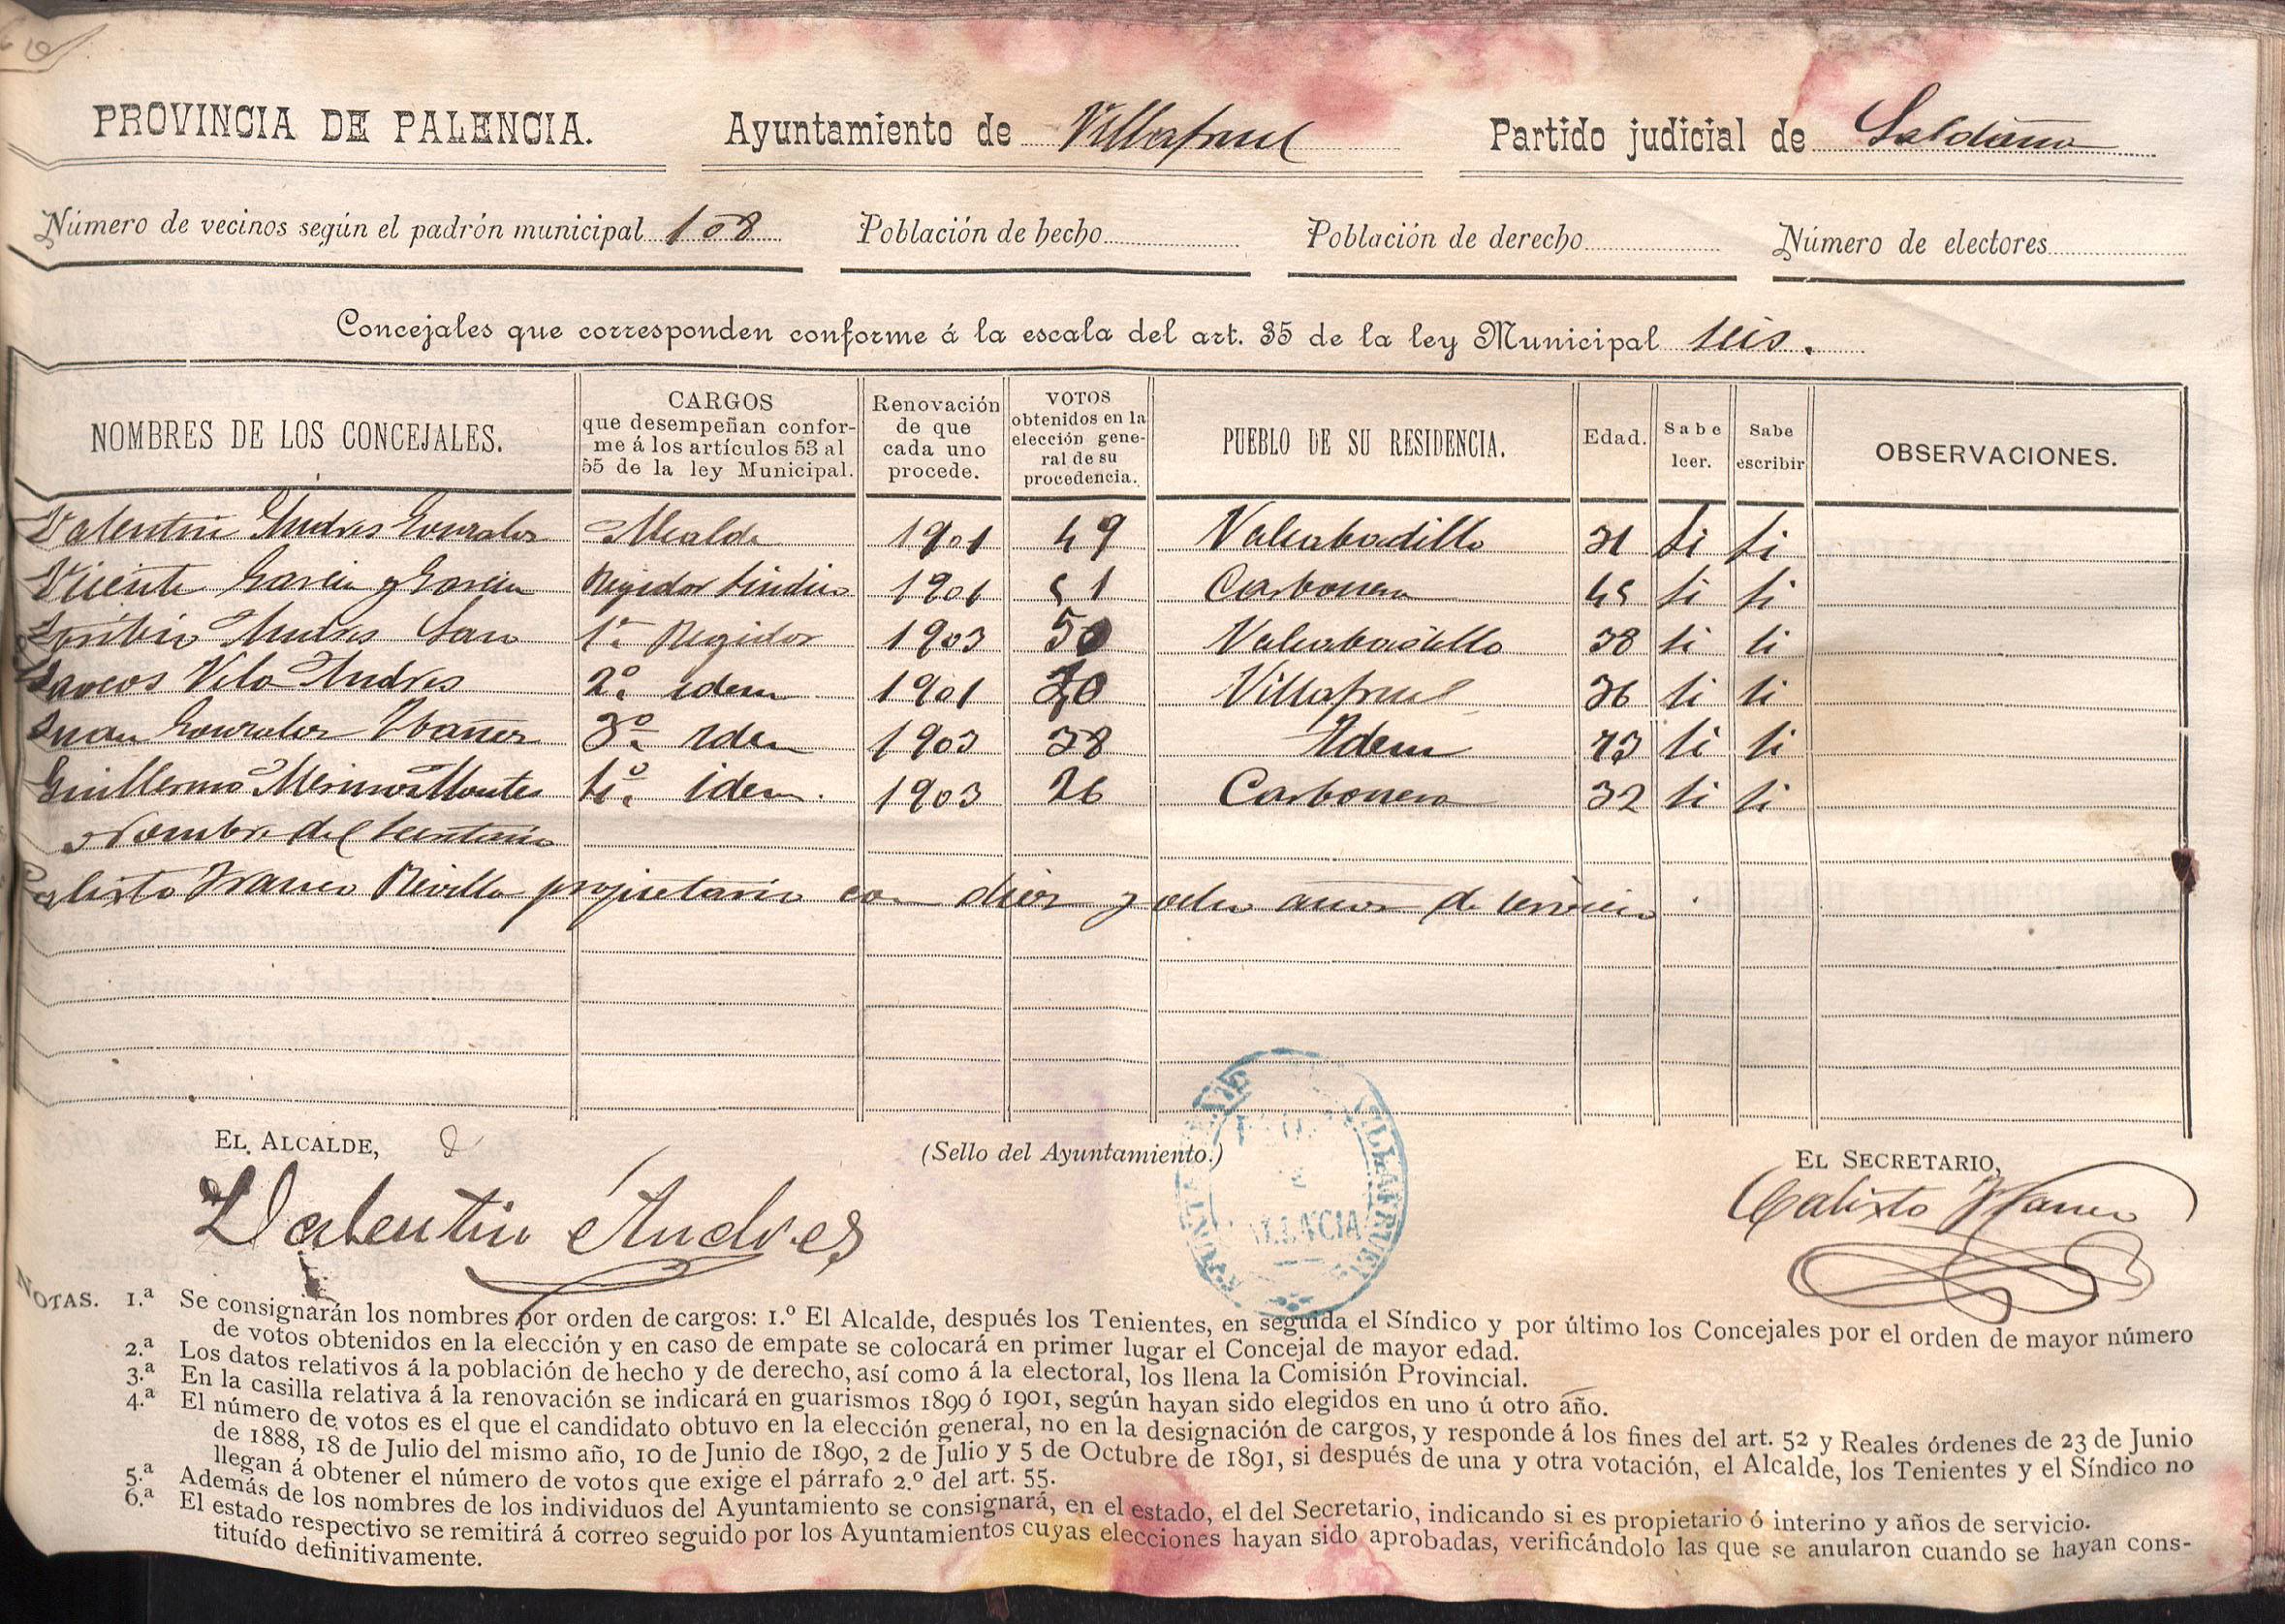 PROVINCIA DE PALENCIA. Ayuntamiento de Villafruel Partido judicial de Saldaña
Número de vecinos según el padrón municipal 108 Población de hecho Población de derecho Número de electores
Concejales que corresponden conforme á la escala del art. 35 de la ley Municipal seis.
NOMBRES DE LOS CONCEJALES. CARGOS que desempeñan conforme á los artículos 53 al 55 de la ley Municipal. Renovación de que cada uno procede. VOTOS obtenidos en la elección general de su procedencia. PUEBLO DE SU RESIDENCIA. Edad. Sabe leer. Sabe escribir OBSERVACIONES.
Valentin Andres Gonzalez Alcalde 1901 49 Valcabadillo 31 Si Si
Vicente Garcia y Garcia Regidor Sindico 1901 51 Carbonera 45 Si Si
Toribio Andres 1er Regidor 1903 50 Valcabadillo 38 Si Si
Marcos Vela Andres 2º idem 1901 Villafruel 36 Si Si
Juan Gonzalez Ybañez 3º Idem 1903 38 Idem 43 Si Si
Guillermo Merino Montes 4º idem. 1903 26 Carbonera 32 Si Si
Nombre del Secretario
Calixto Franco Revilla propietario con diez y ocho años de servicio.
EL ALCALDE, (Sello del Ayuntamiento.) EL SECRETARIO,
Valentin Andres Calixto Franco
VILLAFRUEL
PALENCIA
NOTAS. 1.ª Se consignarán los nombres por orden de cargos: 1.º El Alcalde, después los Tenientes, en seguida el Síndico y por último los Concejales por el orden de mayor número
de votos obtenidos en la elección y en caso de empate se colocará en primer lugar el Concejal de mayor edad.
2.ª Los datos relativos á la población de hecho y de derecho, así como á la electoral, los llena la Comisión Provincial.
3.ª En la casilla relativa á la renovación se indicará en guarismos 1899 ó 1901, según hayan sido elegidos en uno ú otro año.
4.ª El número de votos es el que el candidato obtuvo en la elección general, no en la designación de cargos, y responde á los fines del art. 52 y Reales órdenes de 23 de Junio
de 1888, 18 de Julio del mismo año, 10 de Junio de 1890, 2 de Julio y 5 de Octubre de 1891, si después de una y otra votación, el Alcalde, los Tenientes y el Síndico no
llegan á obtener el número de votos que exige el párrafo 2.º del art. 55.
5.ª Además de los nombres de los individuos del Ayuntamiento se consignará, en el estado, el del Secretario, indicando si es propietario ó interino y años de servicio.
6.ª El estado respectivo se remitirá á correo seguido por los Ayuntamientos cuyas elecciones hayan sido aprobadas, verificándolo las que se anularon cuando se hayan cons-
tituído definitivamente.